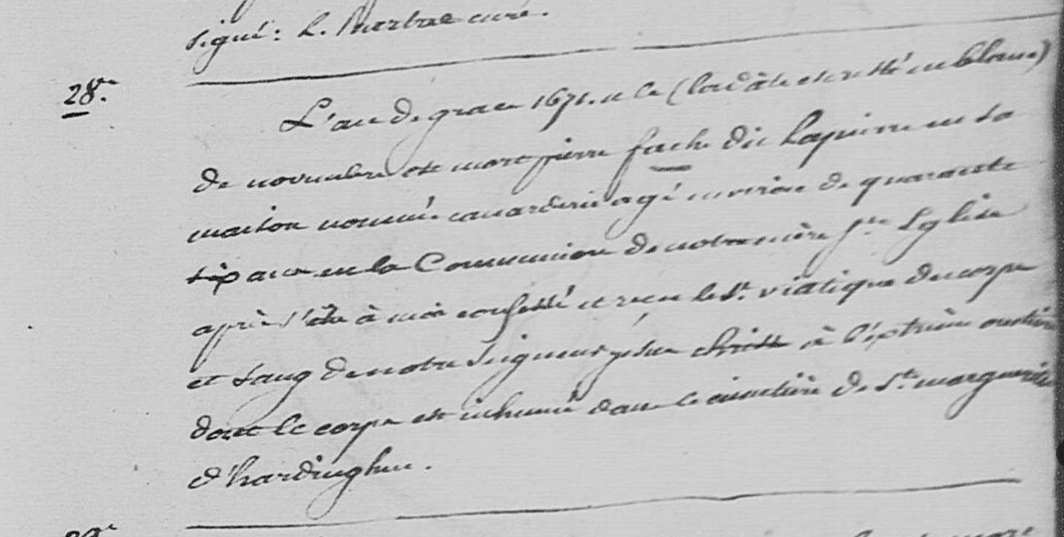 signé: L. Marbae curé.
28e.
L'an de grace 1671. le (la date est restée en blanc)
de novembre est mort pierre fache dit Lapierre en sa
maison nommée canarderie agé environ de quarante
six ans en la Communion de notre mère Ste Eglise
après s'etre à moi confessé et reçu le St. viatique du corps
et sang de notre Seigneur jesus christ à l'extrème onction
dont le corps est inhumé dans le cimetière de Ste marguerite
d'hardinghen.
29e